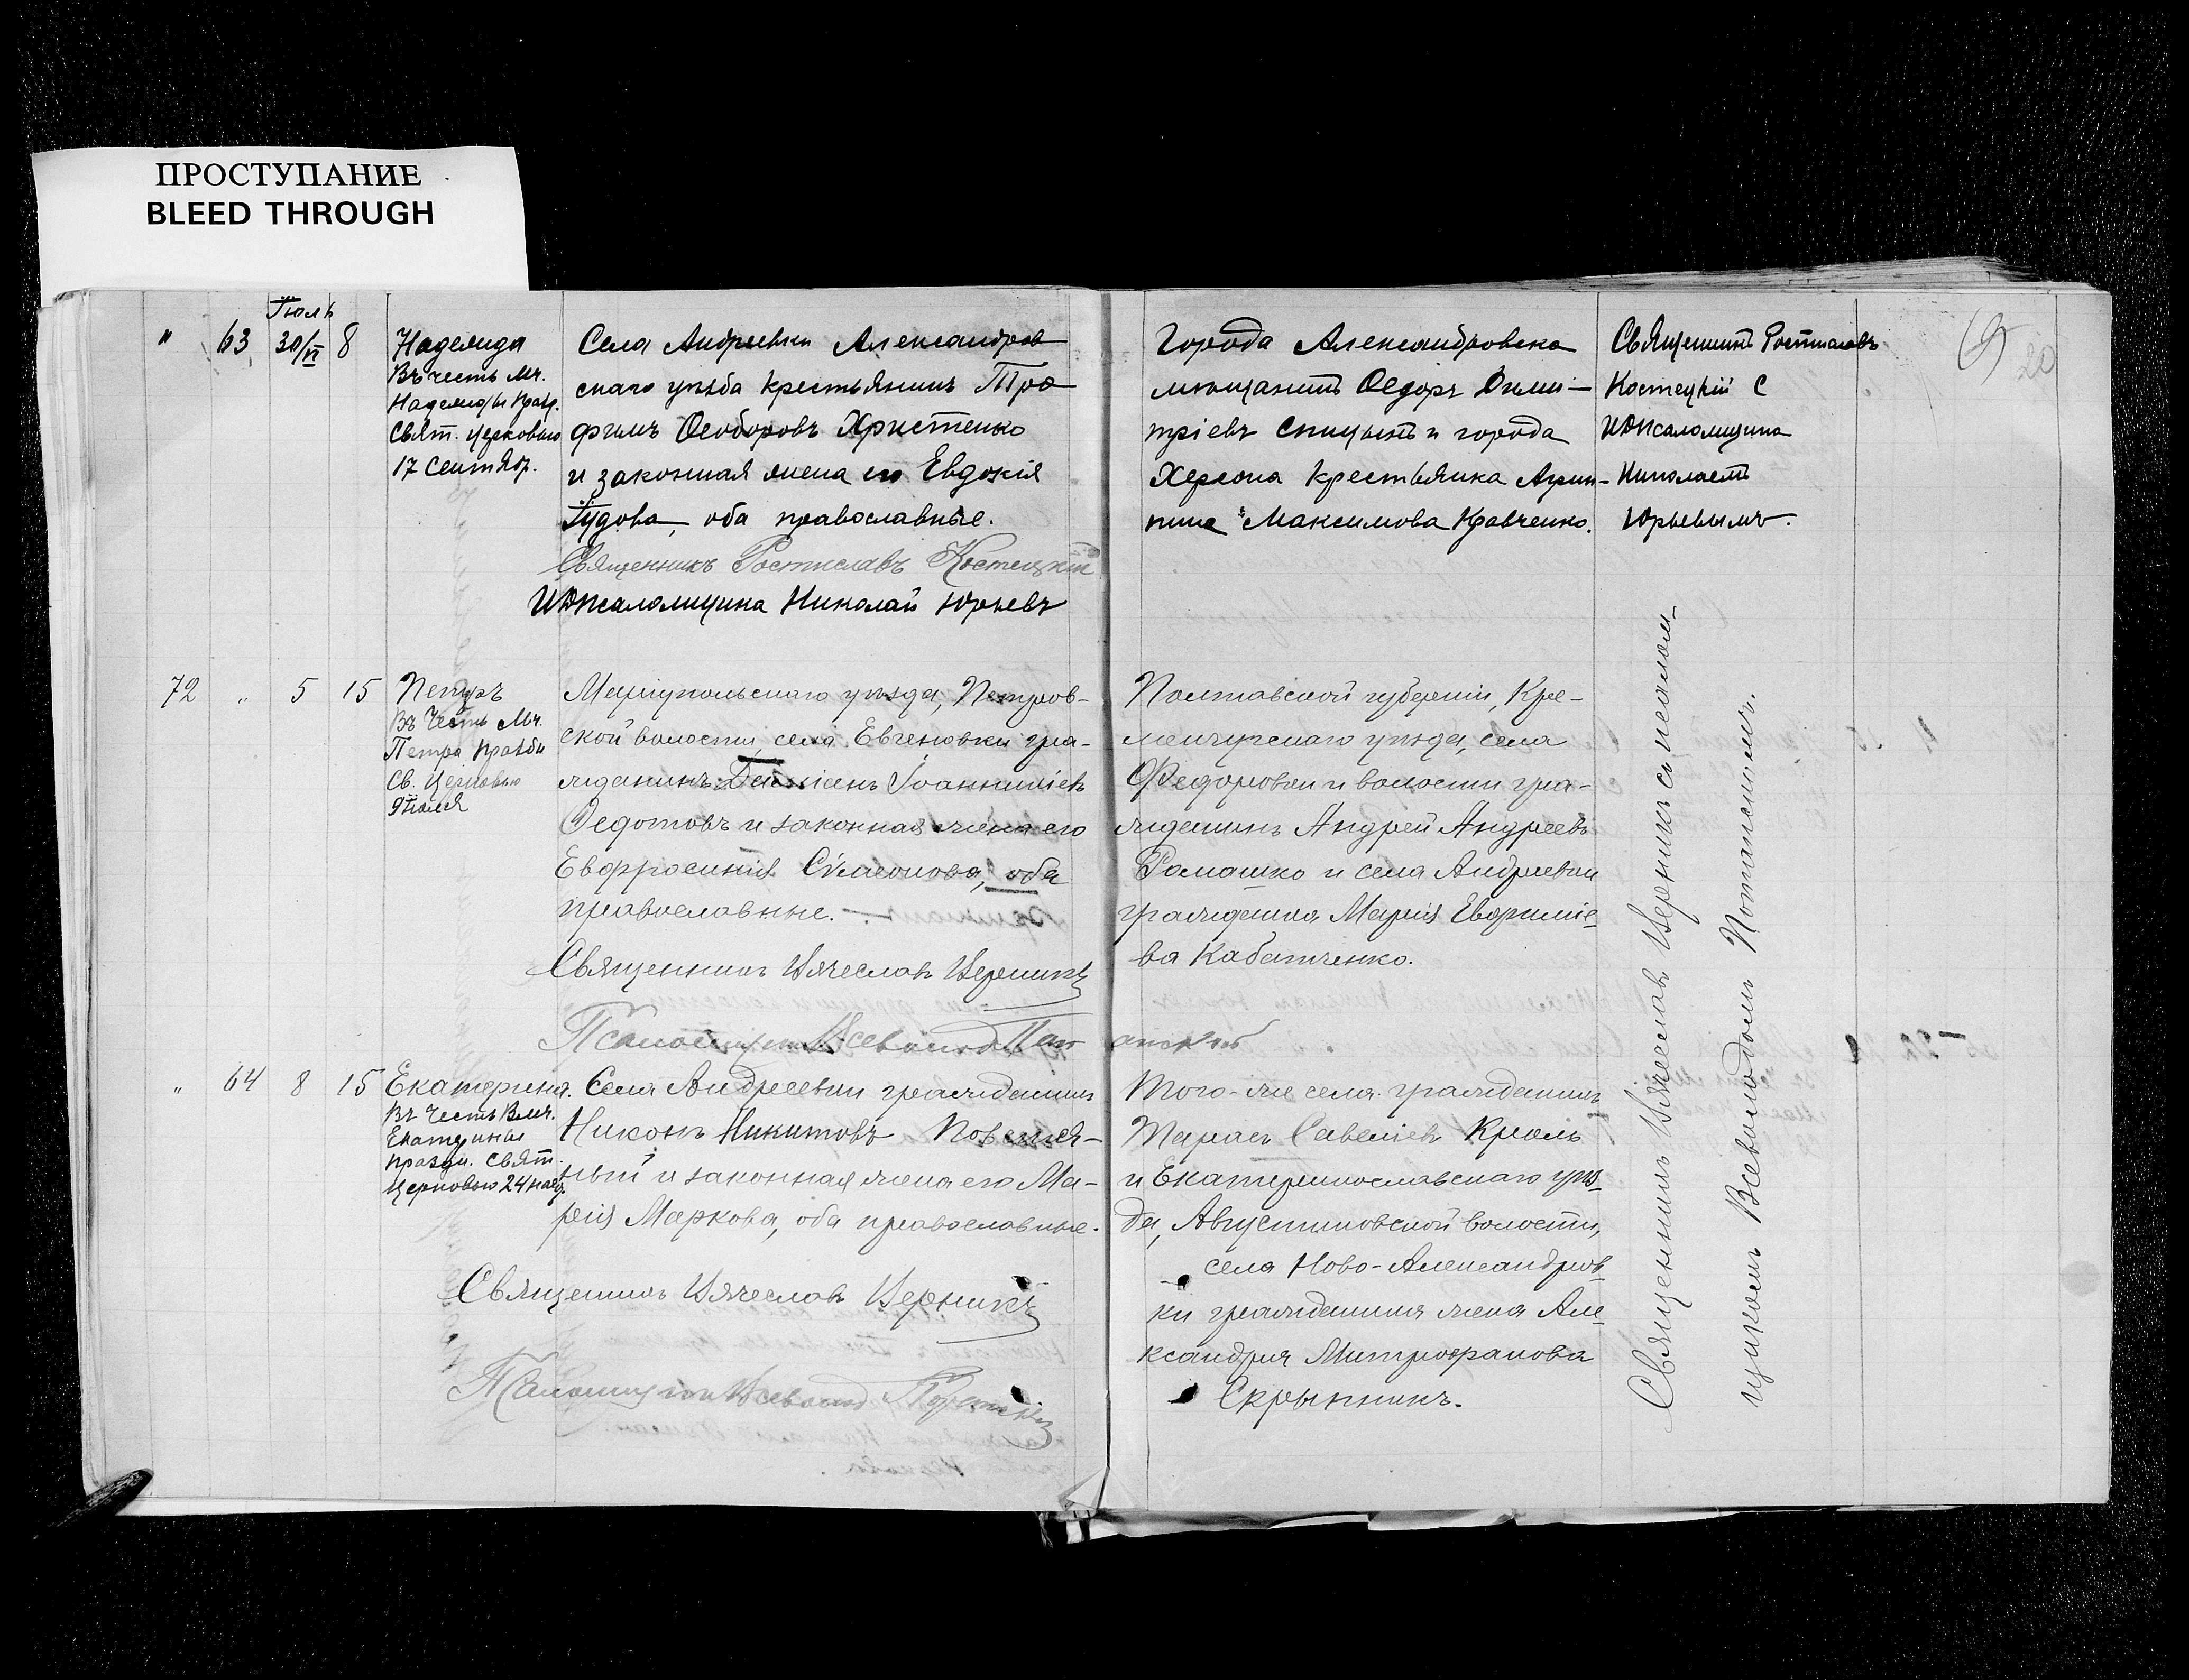 ПРОСТУПАНИЕ
BLEED THROUGH
Іюль
" 63 30/VI 8
Надежда
Въ честь Мч.
Надежды празд.
Свят. Церковью
17 Сентябр.
Села Андреевки Александров
скаго уѣзда крестьянинъ Тро
фимъ Ѳеодоровъ Христенко
и законная жена его Евдокія
Іудова, оба православные.
Священникъ Ростиславъ Костецкій
И Д Псаломщика Николай Юрьевъ
Города Александровска
мѣщанинъ Ѳедоръ Дими-
тріевъ Спицынъ и города
Херсона крестьянка Агрип-
пина Максимова Кравченко.
Священникъ Ростиславъ
Костецкій С
И Д Псаломщика
Николаемъ
Юрьевымъ.
20
72 " 5 15
Петръ
Въ Честь Мч.
Петра празд
Св. Церковью
Іюля
Маріупольскаго уѣзда, Петров-
ской волости, села Евгеновки гра-
жданинъ Іоанникіевъ
Ѳедотовъ и законная жена его
Евфросинія Симеонова, оба
православные.
Священникъ Вячеславъ Церникъ
Псаломщикъ Всеволод
Полтавской губерніи, Кре-
менчугскаго уѣзда, села
Федоровки и волости гра-
жданинъ Андрей Андреевъ
Ромашко и села Андреевки
гражданка Марія Евфиміе-
ва Кабатченко.
" 64 8 15
Екатерина.
Въ Честь Влмч.
Екатерины
праздн. Свят.
Церковью 24 нояб.
Села Андреевки гражданинъ
Никонъ Никитовъ
ный и законная жена его Ма-
рія Маркова, оба православные.
Священникъ Вячеславъ Церникъ
Псаломщикъ Всеволод
Того-же села гражданинъ
Тарасъ Савеліевъ Кроль
и Екатеринославскаго уѣз-
да, Августиновской волости,
села Ново-Александров-
ки гражданина жена Але-
ксандра Митрофанова
Скрыпникъ.
Священникъ Вячеславъ Церникъ съ псалом-
щикомъ Всеволодомъ Потапскимъ.